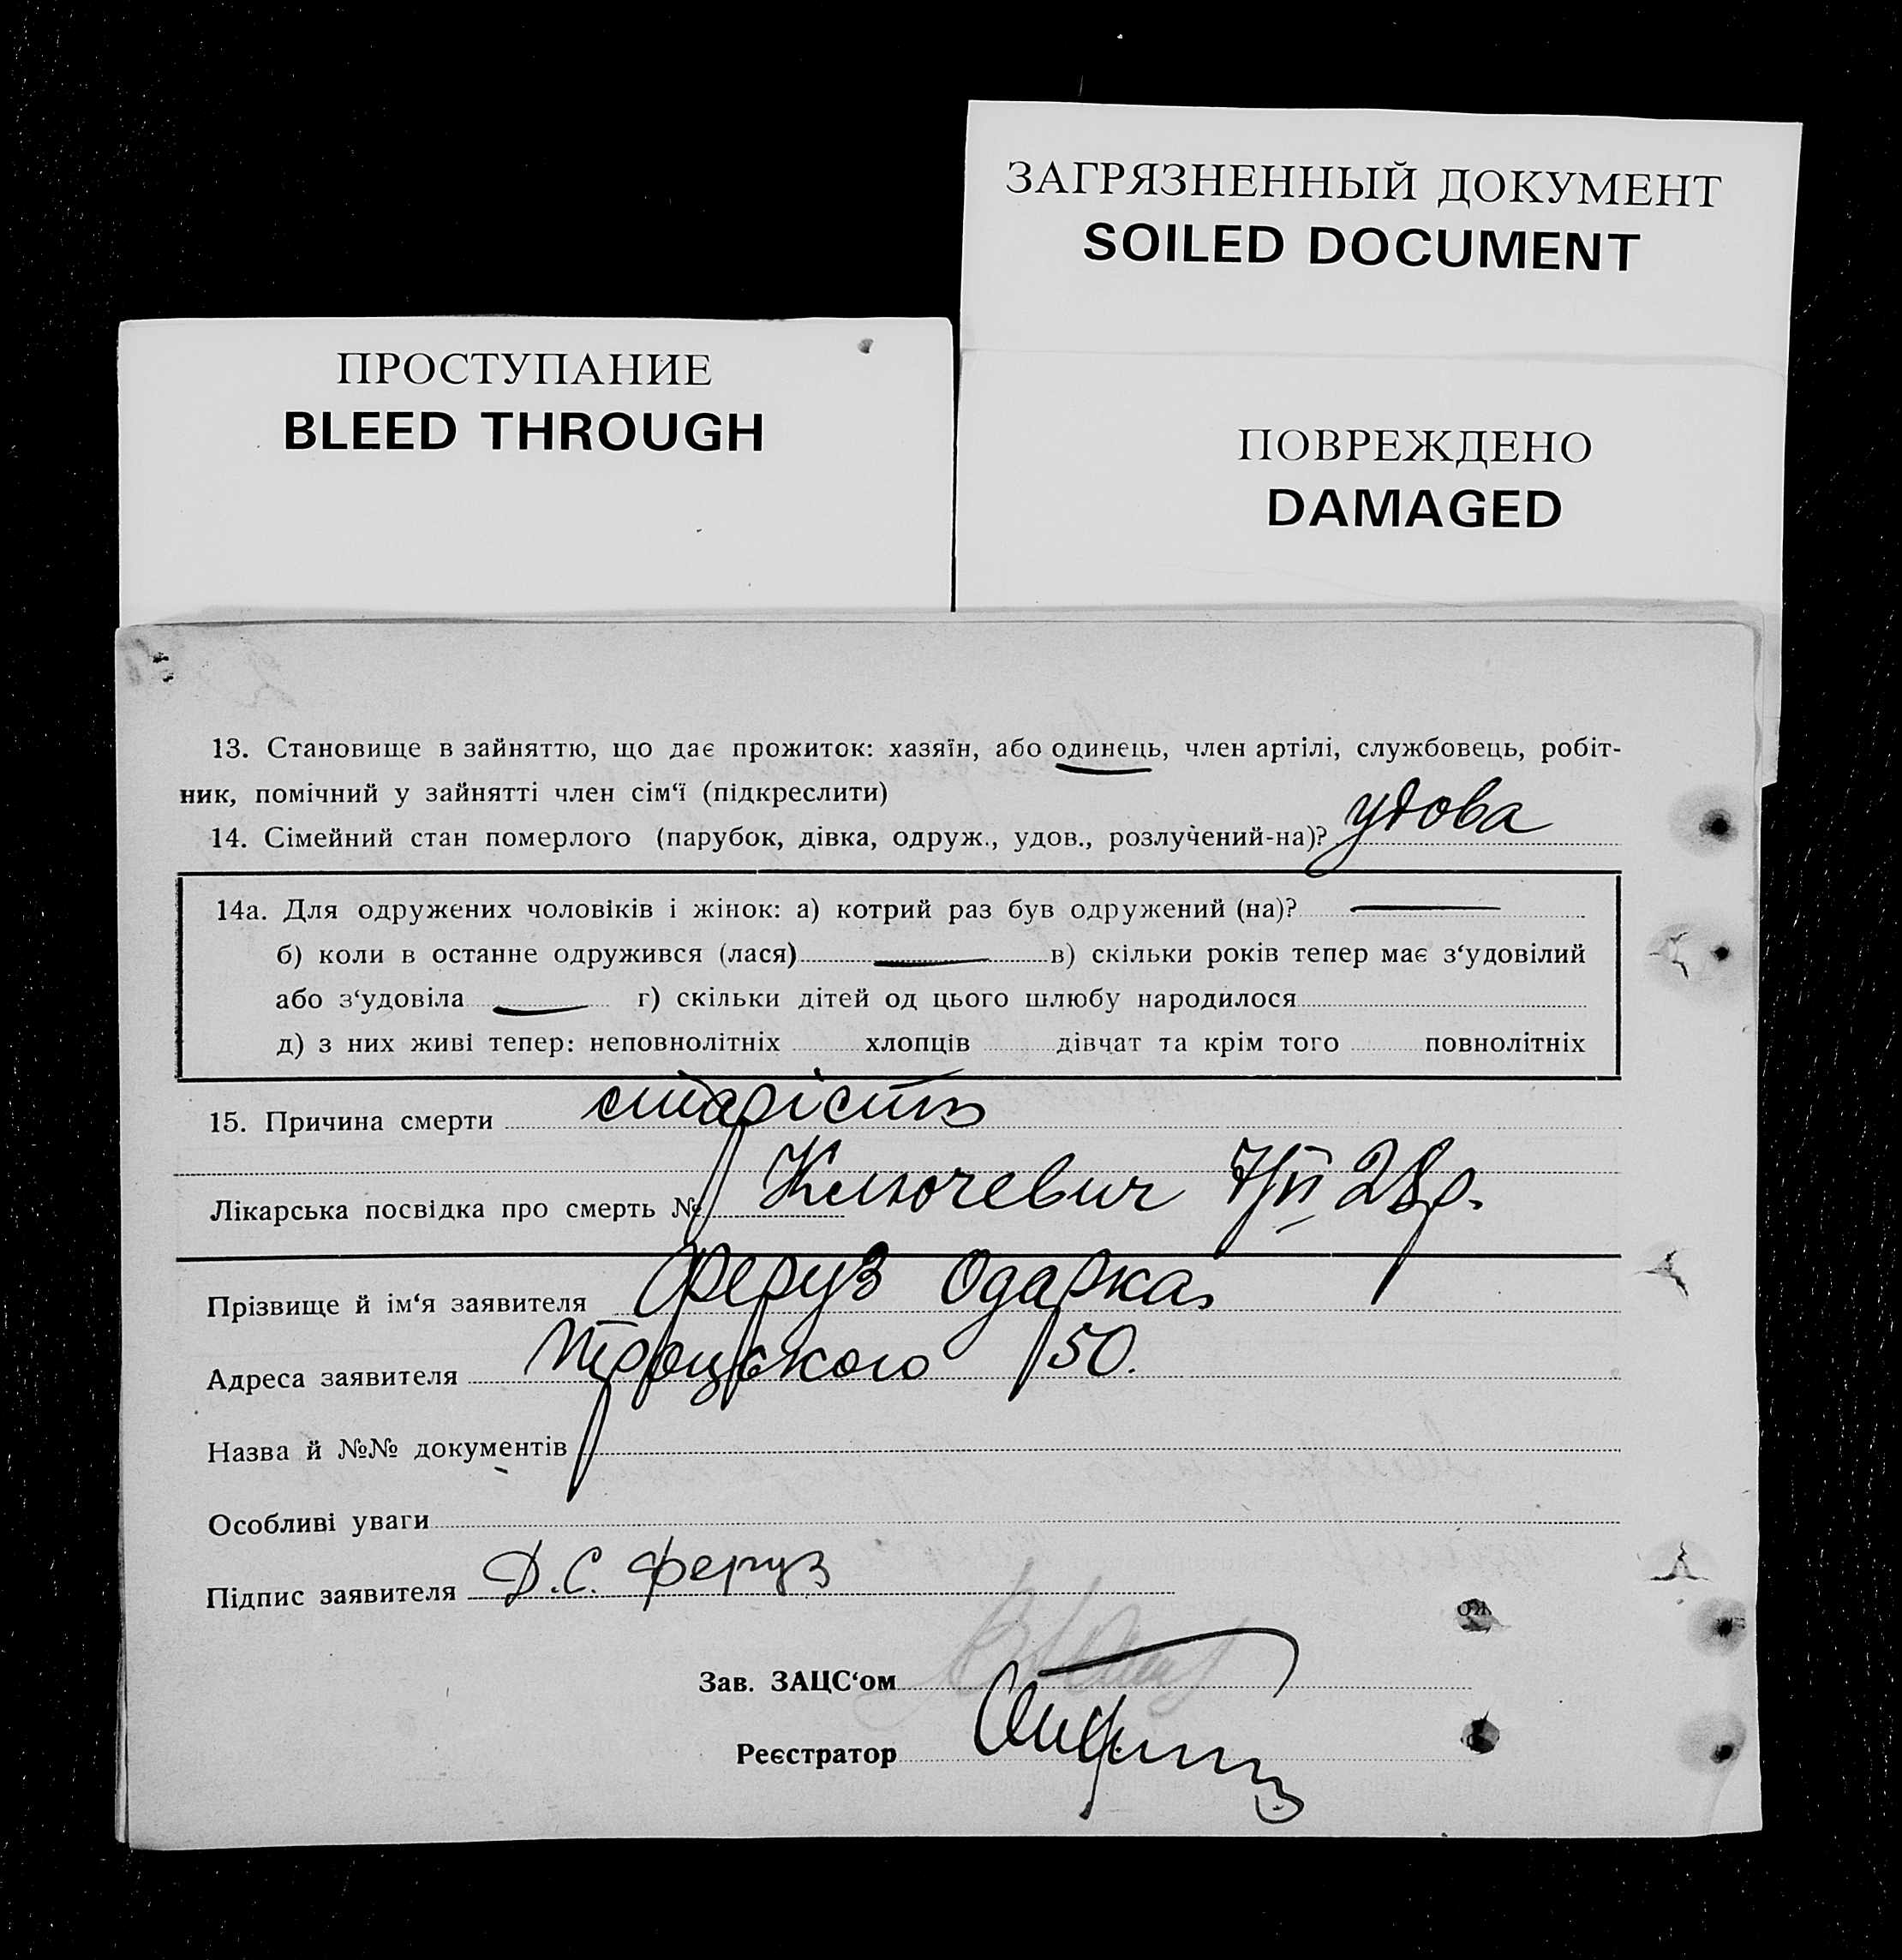 ЗАГРЯЗНЕННЫЙ ДОКУМЕНТ
SOILED DOCUMENT
ПРОСТУПАНИЕ
BLEED THROUGH
ПОВРЕЖДЕНО
DAMAGED
13. Становище в зайняттю, що дає прожиток: хазяїн, або одинець, член артілі, службовець, робіт-
ник, помічний у зайнятті член сім‘ї (підкреслити)
14. Сімейний стан померлого (парубок, дівка, одруж., удов., розлучений-на)? удова
14а. Для одружених чоловіків і жінок: а) котрий раз був одружений (на)? —
б) коли в останне одружився (лася) — в) скільки років тепер має з‘удовілий
або з‘удовіла — г) скільки дітей од цього шлюбу народилося
д) з них живі тепер: неповнолітніх хлопців дівчат та крім того повнолітніх
15. Причина смерти старість
Лікарська посвідка про смерть № Ключевич 7/VI 28р.
Прізвище й ім‘я заявителя Феруз Одарка
Адреса заявителя Троцького 50.
Назва й №№ документів
Особливі уваги
Підпис заявителя Д.С. Феруз
Зав. ЗАЦС‘ом
Реєстратор